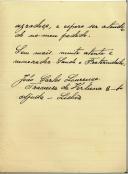 agradeço, e espero ser atendido
no meu pedido.
Sem mais, muito atento e
venerador Saude e Fraternidade
João Carlos Lourenço
Travessa de
Lisboa